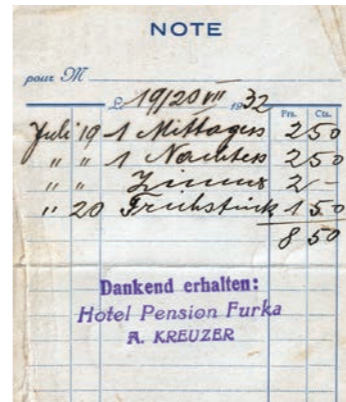 NOTE
pour M
le 19/20 VII 1932
Frs. Cts.
Juli 19 1 Mittagess 2 50
" " 1 Nachtess 2 50
" " Zimmer 2 -
" 20 Frühstück 1 50
8 50
Dankend erhalten:
Hotel Pension Furka
A. KREUZER